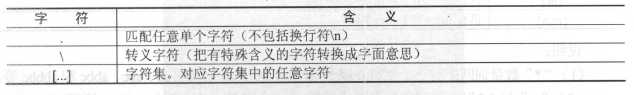 字 符 含 义
. 匹配任意单个字符（不包括换行符\n）
\ 转义字符（把有特殊含义的字符转换成字面意思）
[...] 字符集。对应字符集中的任意字符